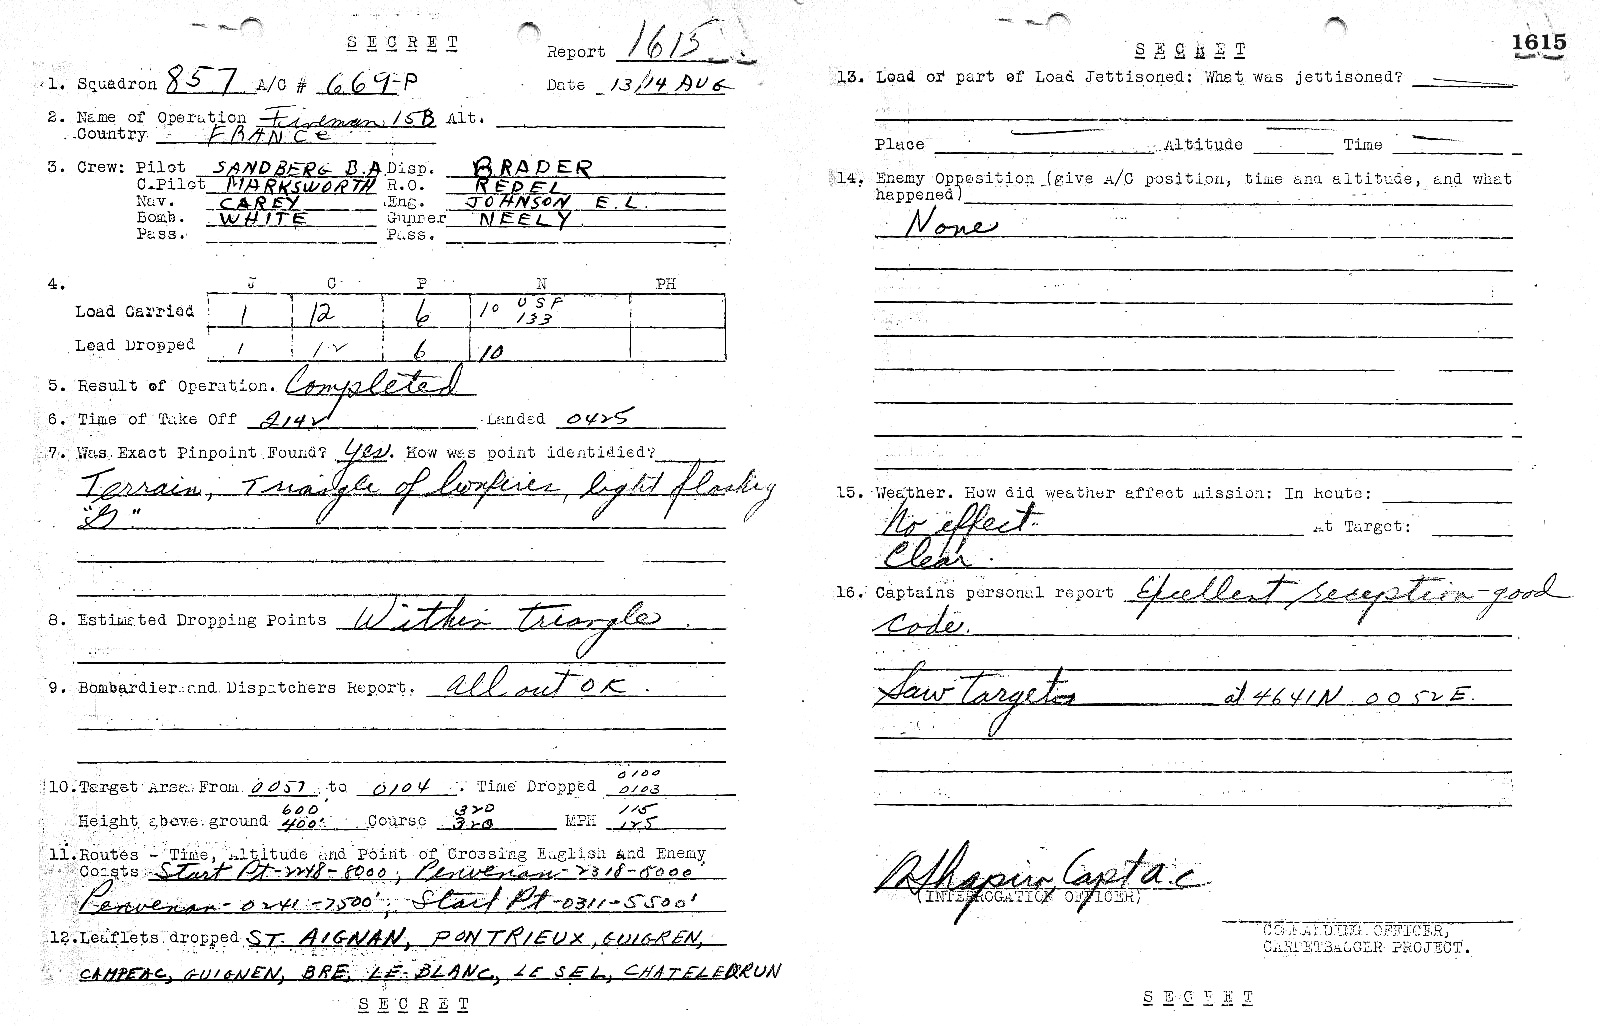 SECRET
Report 1615
1. Squadron 857 A/C # 669-P Date 13/14 AUG
2. Name of Operation Fireman 15B Alt.
Country FRANCE
3. Crew: Pilot SANDBERG B.A Disp. BRADER
C.Pilot MARKSWORTH R.O. REDEL
Nav. CAREY Eng. JOHNSON E.L.
Bomb. WHITE Gunner NEELY
Pass. Pass.
4. J C P N PH
Load Carried 1 12 6 10 USF 133
Load Dropped 1 12 6 10
5. Result of Operation. Completed
6. Time of Take Off 2142 Landed 0425
7. Was Exact Pinpoint Found? Yes. How was point identidied?
Terrain, Triangle of bonfires, light flashing
"G"
8. Estimated Dropping Points Within triangle.
9. Bombardier and Dispatchers Report. All out OK.
0100
10. Target Area From 0057 to 0104. Time Dropped 0103
600' 320 115
Height above ground 400' Course 320 MPH 125
11. Routes - Time, Altitude and Point of Crossing English and Enemy
Coasts Start Pt-2248-8000; Penvenan-2318-8000'
Penvenan-0241-7500'; Start Pt-0311-5500'
12. Leaflets dropped ST. AIGNAN, PONTRIEUX, GUIGREN,
CAMPEAC, GUIGNEN, BRE, LE BLANC, LE SEL, CHATELEDRUN
SECRET
SECRET
1615
13. Load or part of Load Jettisoned: What was jettisoned?
Place Altitude Time
14. Enemy Opposition (give A/C position, time and altitude, and what
happened)
None
15. Weather. How did weather affect mission: In Route:
No effect. At Target:
Clear.
16. Captains personal report Excellent reception-good
code.
Saw targets at 4641N 0052E.
R Shapiro, Capt A.C
(INTERROGATION OFFICER)
COMMANDING OFFICER,
CARPETBAGGER PROJECT.
SECRET